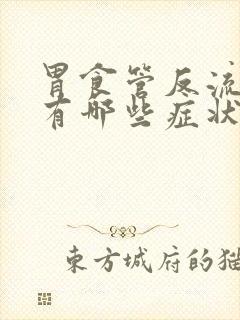 胃食管反流
有哪些症状
东方城府的猫